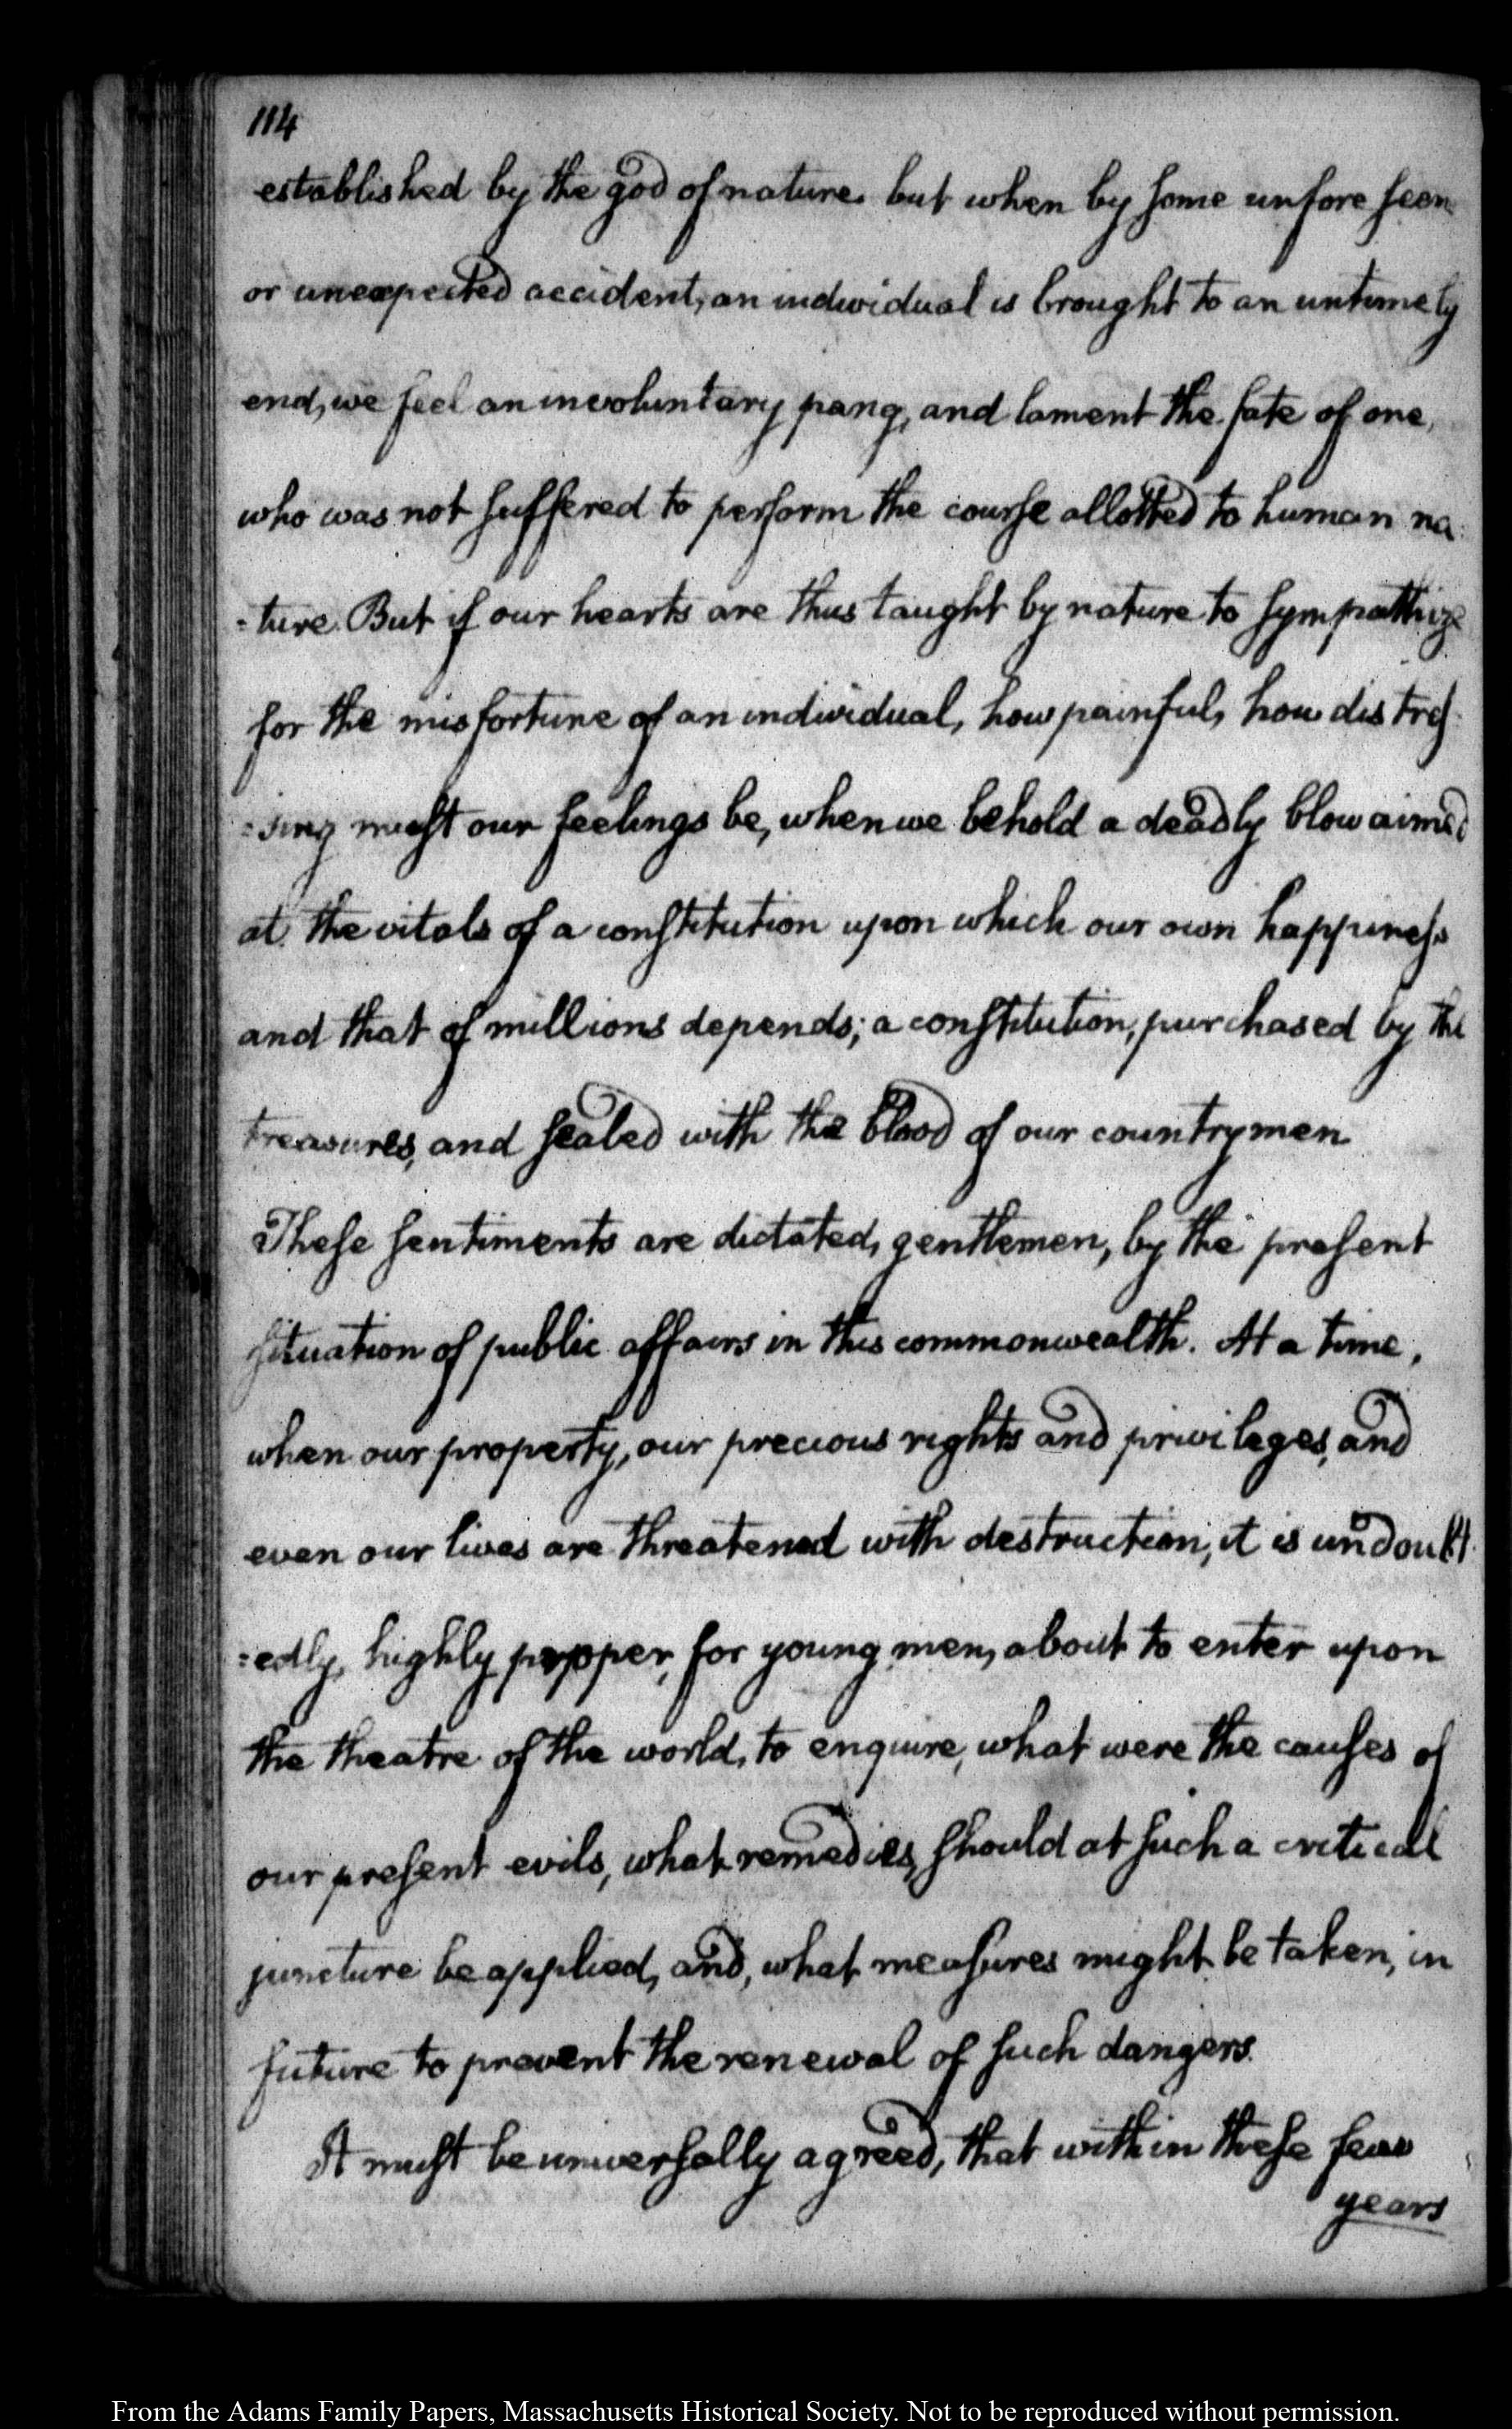 114
established by the god of nature. but when by some unfore seen
or unexpected accident, an individual is brought to an untimely
end, we feel an involuntary pang, and lament the fate of one,
who was not suffered to perform the course allotted to human na
-ture. But if our hearts are thus taught by nature to sympathize
for the misfortune of an individual, how painful, how distres
-sing must our feelings be, when we behold a deadly blow aimed
at the vitals of a constitution upon which our own happiness
and that of millions depends; a constitution, purchased by the
treasures, and sealed with the blood of our countrymen
These sentiments are dictated, gentlemen, by the present
situation of public affairs in this commonwealth. At a time,
when our property, our precious rights and privileges, and
even our lives are threatened with destruction, it is undoubt
:edly, highly propper, for young men, about to enter upon
the theatre of the world, to enquire, what were the causes of
our present evils, what remedies, should at such a critical
juncture be applied, and, what measures might be taken, in
future to prevent the renewal of such dangers.
It must be universally agreed, that within these few
years
From the Adams Family Papers, Massachusetts Historical Society. Not to be reproduced without permission.